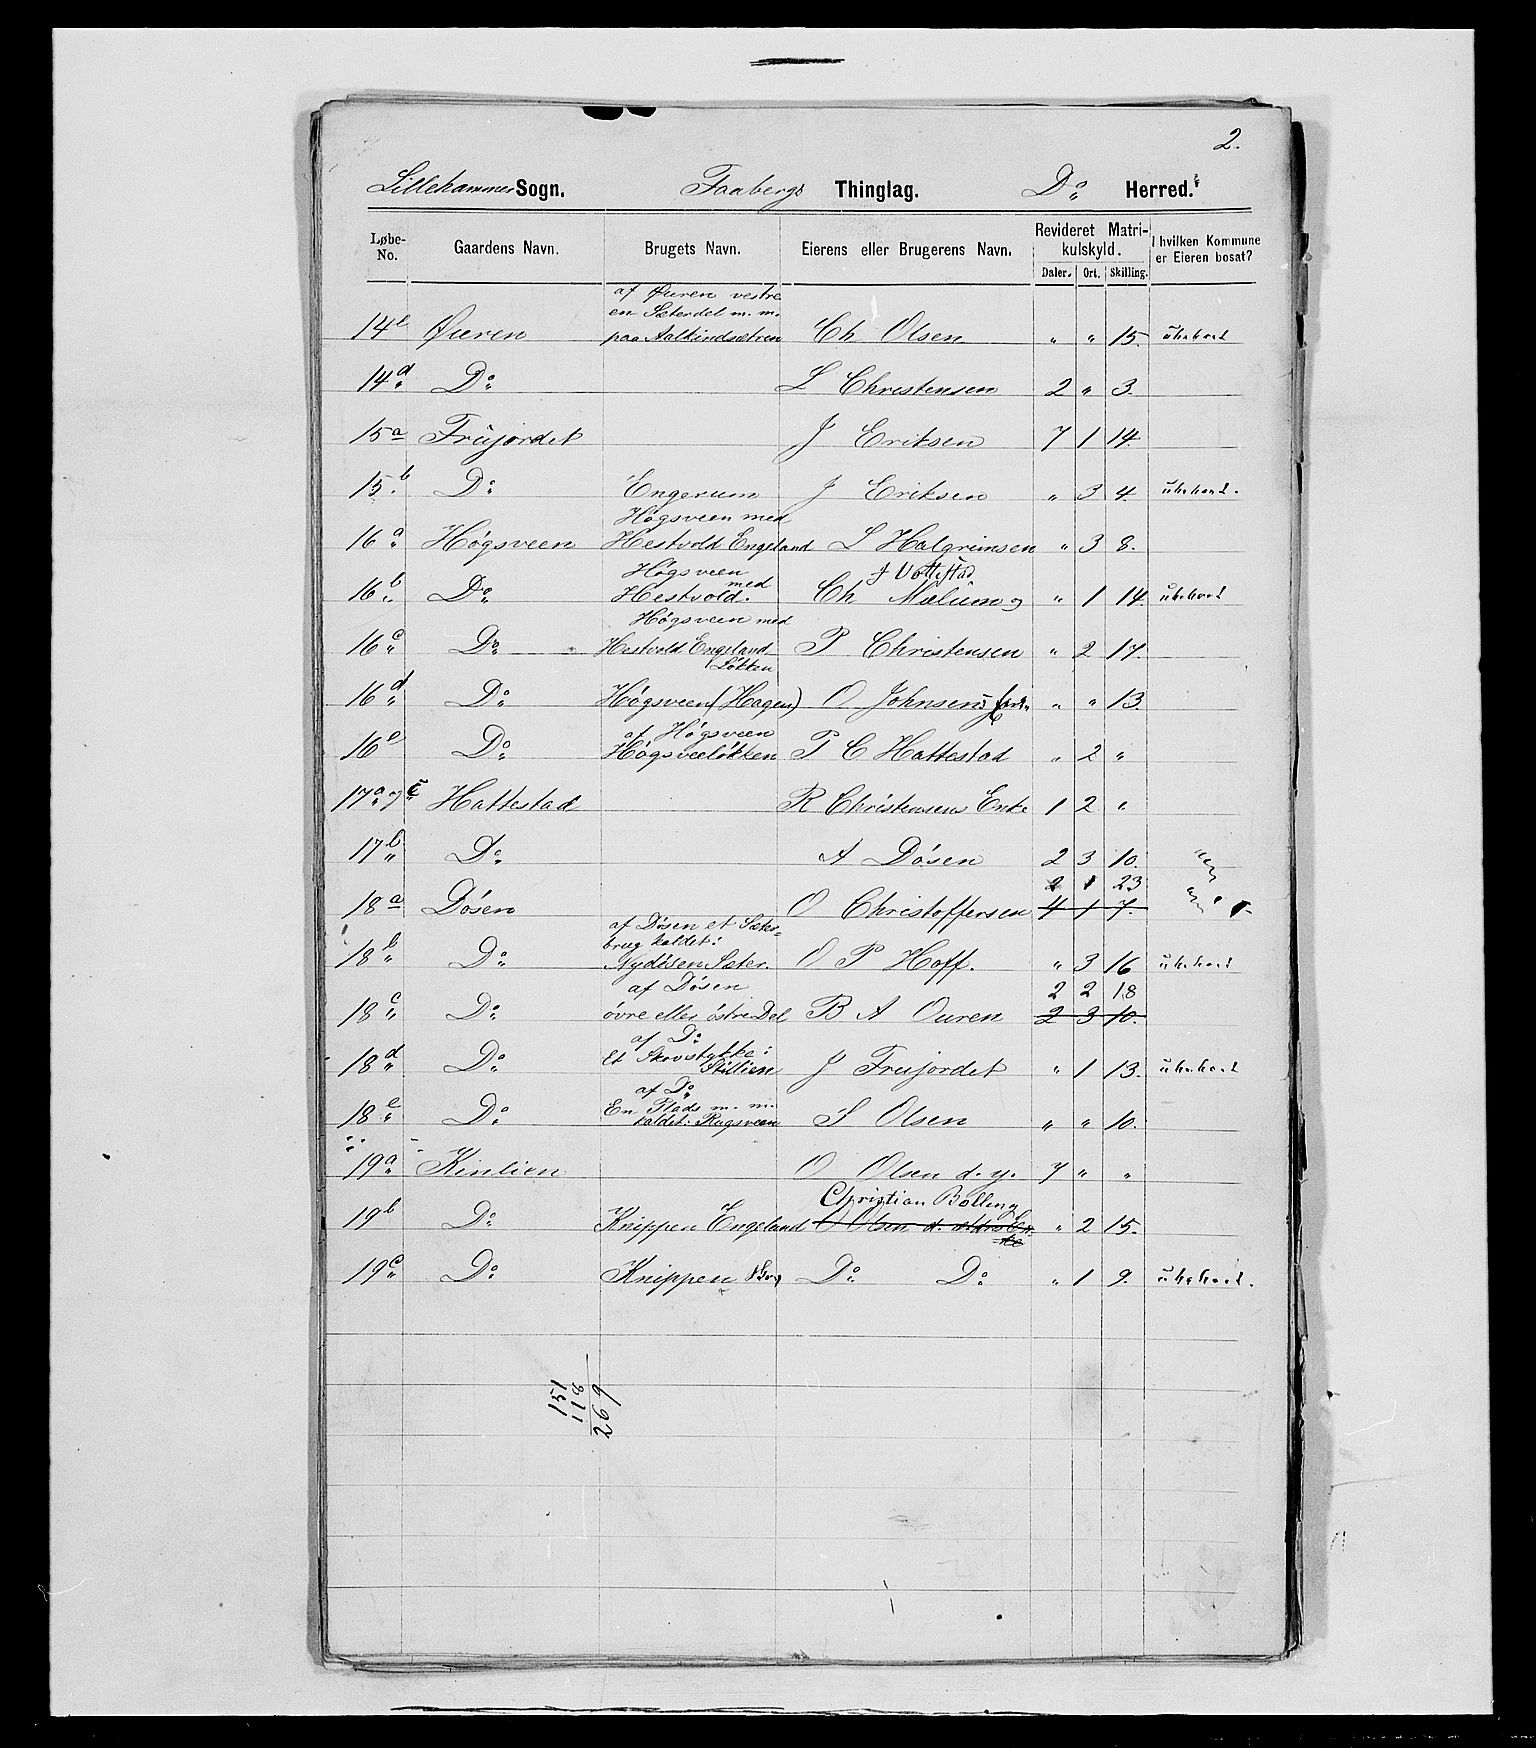 2.
Lillehammer Sogn. Faabergs Thinglag. Do Herred.
Løbe-No. Gaardens Navn. Brugets Navn. Eierens eller Brugerens Navn. Revideret Matrikulskyld. I hvilken Kommune er Eieren bosat?
Daler. Ort. Skilling.
af Øuren vestre
en Sæterdel m. m.
14 Øuren paa Aalkindsætren Ch Olsen " " 15. ubeboet
14d Do L Christensen 2 " 3.
15a Frujordet J Eriksen 7 1 14.
15.b Do Engerum J Eriksen " 3 4. ubeboet.
Høgsveen med
16a Høgsveen Hestvold Engeland L Halgrimsen " 3 8.
Høgsveen med
16b Do Hestvold. Ch Mælum og " 1 14. ubeboet
Høgsveen med
16c Do Hestvold Engeland P Christensen " 2 17.
Løkken
16d Do Høgsveen (Hagen) O Johnsen " " 13.
af Høgsveen
16e Do Høgsveeløkken P C Hattestad " 2 "
17a og c Hattestad R Christensens Enke 1 2 "
17b Do A Døsen 2 3 10.
2 1 23
18a Døsen O Christoffersen 4 1 7.
af Døsen et Sæter=
brug kaldet:
18b Do Nydøsen Sæter. O P Hoff. " 3 16 ubeboet
af Døsen 2 2 18
18c Do øvre eller østre Del B A Ouren 2 3 10.
af Do
Et Skovstykke:
18d Do Stillien J Frujordet " 1 13. ubeboet
af Do
En Plads m. m.
18e Do kaldet: Rugsveen S Olsen " " 10.
19a Kinlien O Olsen d. y. 7 " "
Christian Bølling
19b Do Knippen Engeland O Olsen d. ældres Enke " 2 15.
19c Do Knippen Skov Do Do " 1 9. ubeboet.
151
118
269